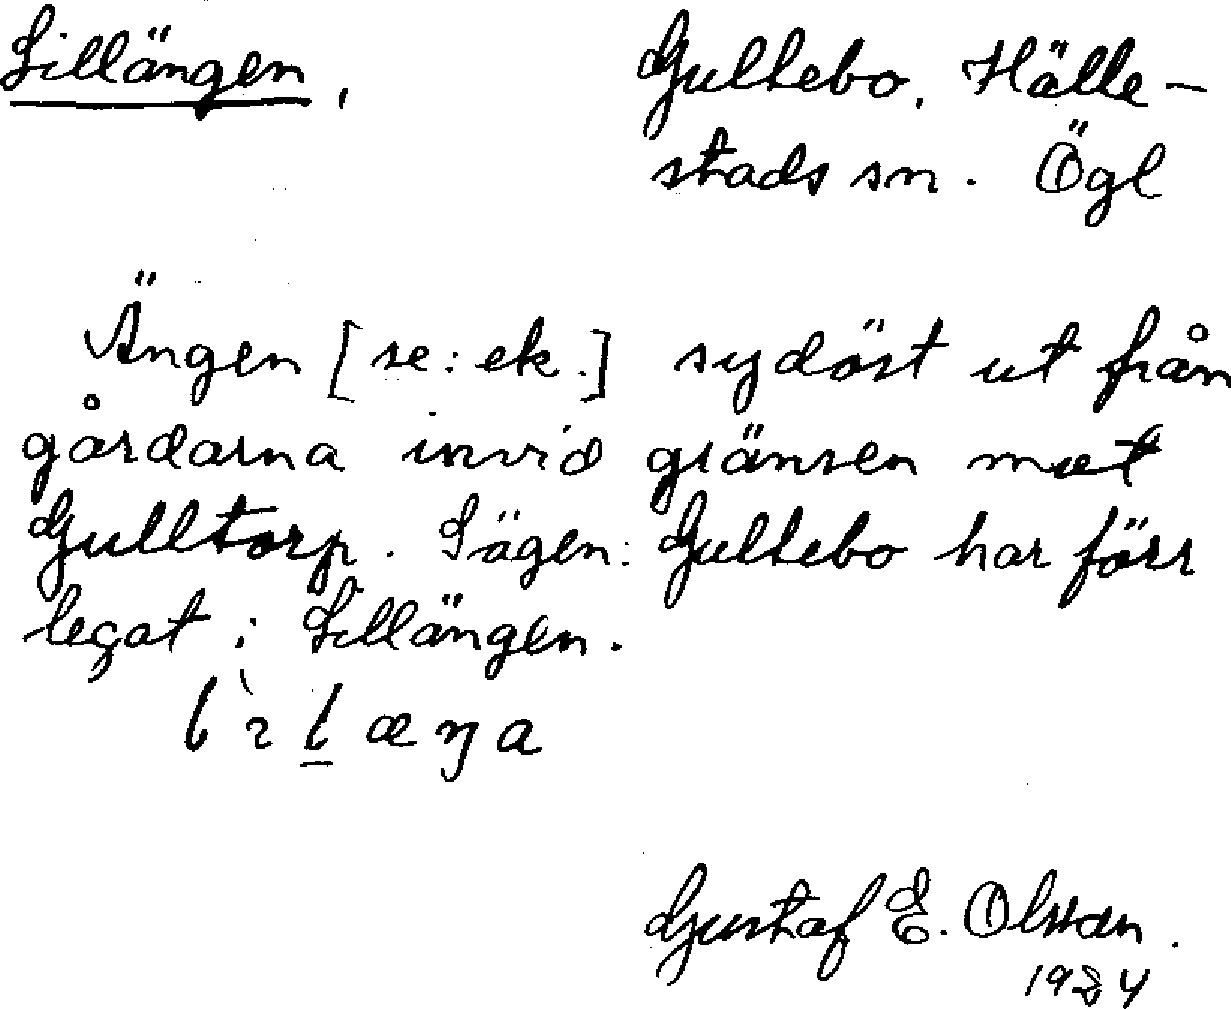 Lillängen, Gullebo, Hälle-
stads sn. Ögl
Ängen [se: ek.] sydöst ut från
gårdarna invid gränsen mot
Gulltorp. Sägen: Gullebo har förr
legat i Lillängen.
Gustaf E. Olsson.